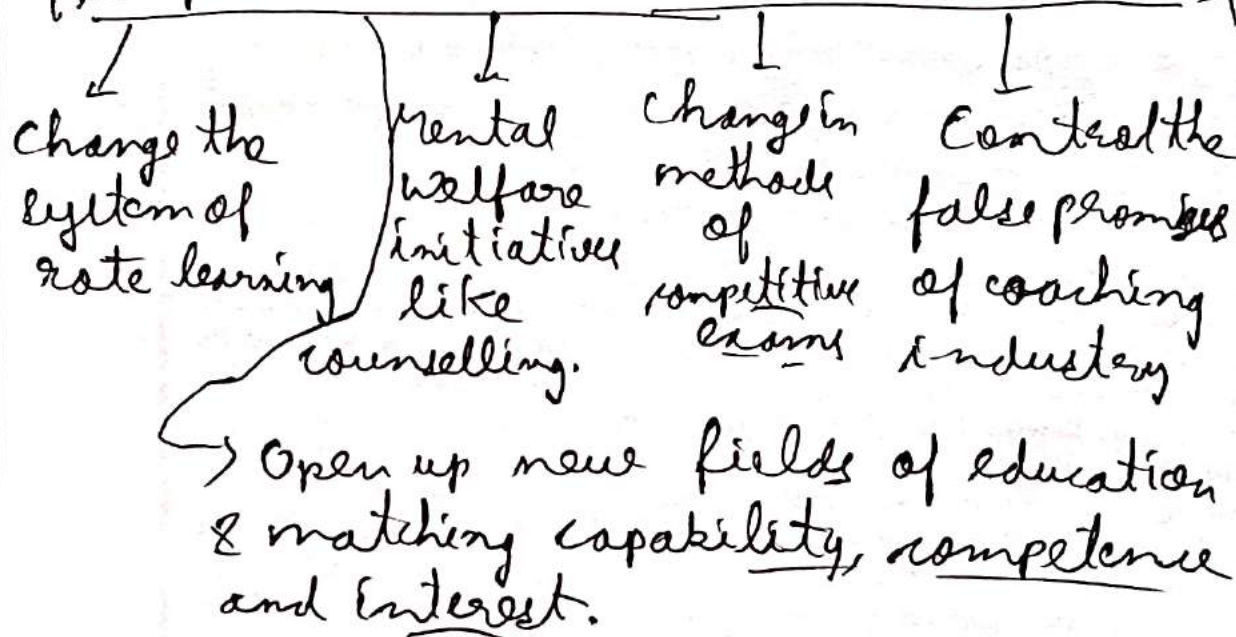 Change the
system of
rote learning
Mental
welfare
initiatives
like
counselling.
Change in
methods
of
competitive
exams
Control the
false promises
of coaching
industry
Open up new fields of education
& matching capability, competence
and interest.